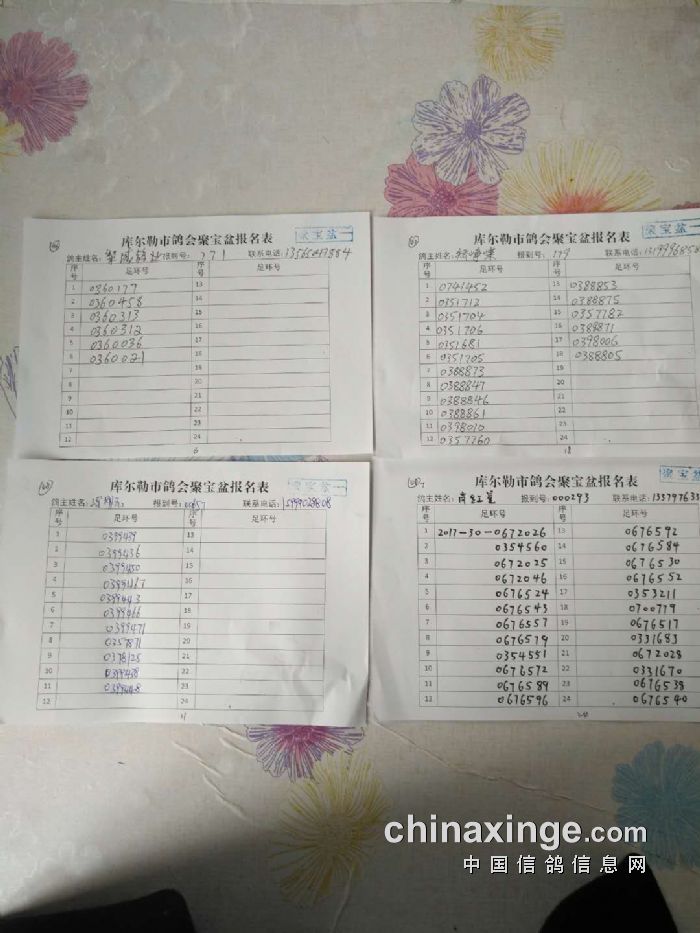 聚宝盆一
库尔勒市鸽会聚宝盆报名表
鸽主姓名: 报到号: 771 联系电话:
序号 足环号 序号 足环号
1 0360177 13
2 0360458 14
3 0360313 15
4 0360312 16
5 0360036 17
6 0360021 18
7 19
8 20
9 21
10 22
11 23
12 24
6
聚宝盆一
库尔勒市鸽会聚宝盆报名表
鸽主姓名: 报到号: 179 联系电话:
序号 足环号 序号 足环号
1 0741452 13 0388853
2 0351712 14 0388875
3 0351704 15 0357182
4 0351706 16 0388871
5 0351681 17 0398006
6 0351705 18 0388805
7 0388873 19
8 0388847 20
9 0388846 21
10 0388861 22
11 0398010 23
12 0357260 24
18
聚宝盆一
库尔勒市鸽会聚宝盆报名表
鸽主姓名: 报到号: 联系电话:
序号 足环号 序号 足环号
1 0399439 13
2 0399436 14
3 0399450 15
4 16
5 0399443 17
6 0399466 18
7 0399471 19
8 0357871 20
9 0378125 21
10 0399438 22
11 23
12 24
11
聚宝盆一
库尔勒市鸽会聚宝盆报名表
鸽主姓名: 报到号: 000293 联系电话: 13579763
序号 足环号 序号 足环号
1 2017-30-0672026 13 0676592
2 0354560 14 0676584
3 0672025 15 0676530
4 0672046 16 0676552
5 0676524 17 0353211
6 0676543 18 0700719
7 0676557 19 0676517
8 0676519 20 0331683
9 0354551 21 0672028
10 0676572 22 0331670
11 0676589 23 0676538
12 0676596 24 0676540
24
chinaxinge.com
中国信鸽信息网